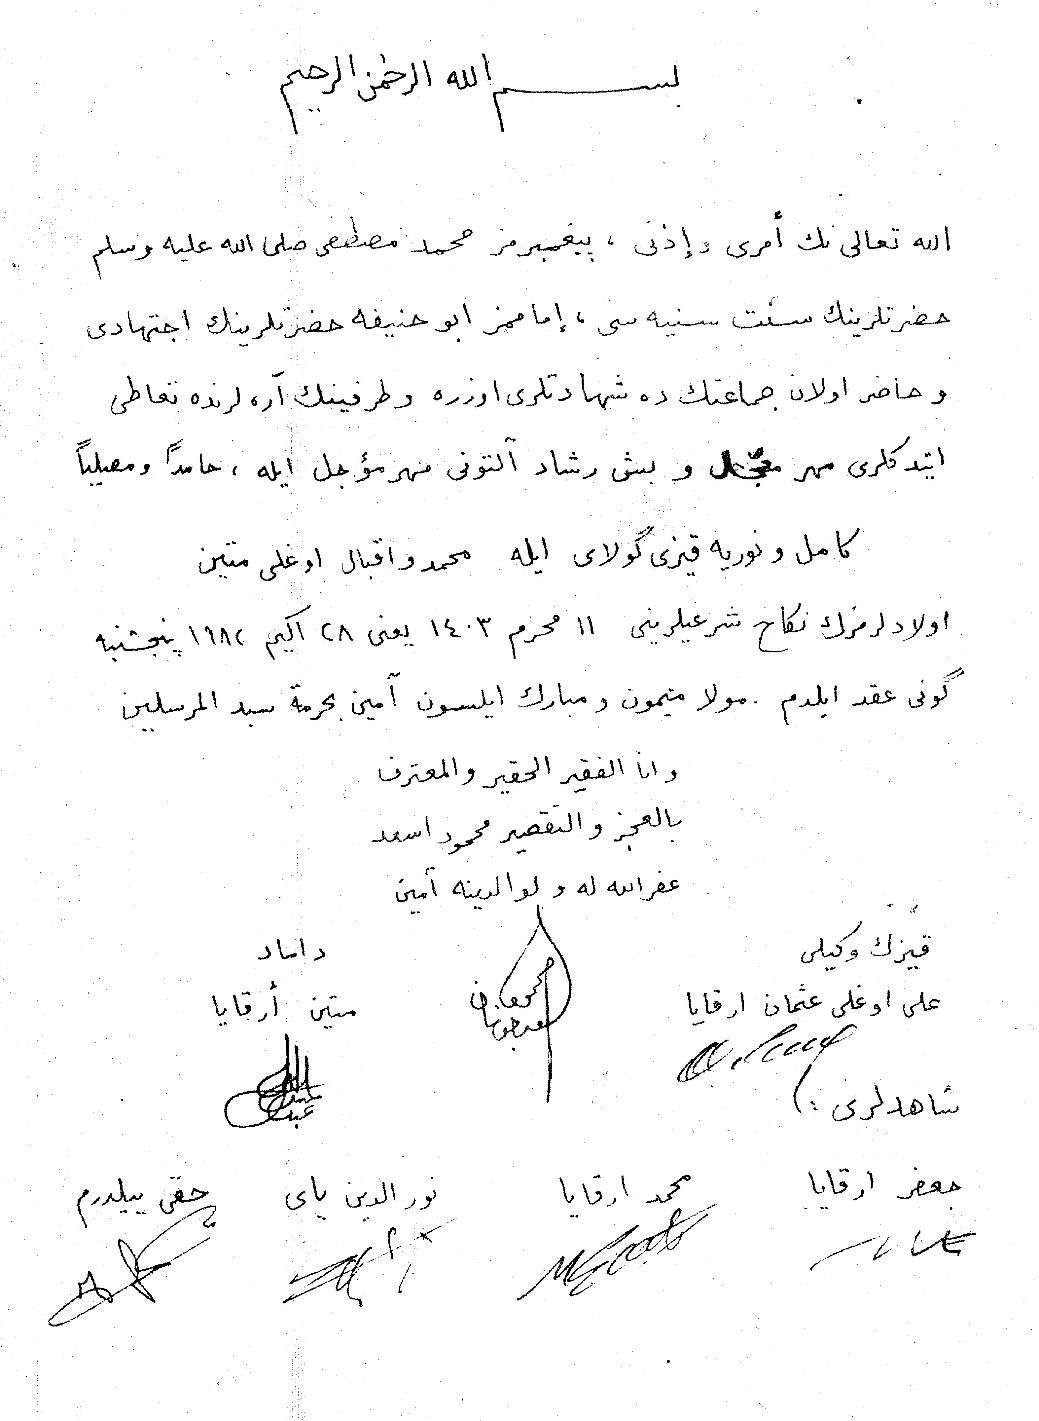 بسم الله الرحمن الرحيم
الله تعالى نك أمرى و إذنى ، پيغمبرمز محمد مصطفى صلى الله عليه وسلم
حضرتلرينك سنت سنيه سى ، إماممز ابو حنيفه حضرتلرينك اجتهادى
و حاضر اولان جماعتك ده شهادتلرى اوزره و طرفينك آره لرنده تعاطى
ايتدكلرى مهر معجّل و بش رشاد آلتونى مهر مؤجل ايله ، حامداً ومصلياً
كامل و نوريه قيزى گولاى ايله محمد و اقبال اوغلى متين
اولادلرمزك نكاح شرعيلرينى ١١ محرم ١٤٠٣ يعنى ٢٨ اكيم ١٩٨٢ پنجشنبه
گونى عقد ايلدم . مولا ميمون و مبارك ايلسون آمين بحرمة سيد المرسلين
و انا الفقير الحقير والمعترف
بالعجز و التقصير محمود اسعد
غفر الله له و لوالدينه آمين
قيزك وكيلى
داماد
على اوغلى عثمان ارقايا
متين أرقايا
شاهدلرى :
جعفر ارقايا محمد ارقايا نور الدين ياى حقى ييلدرم